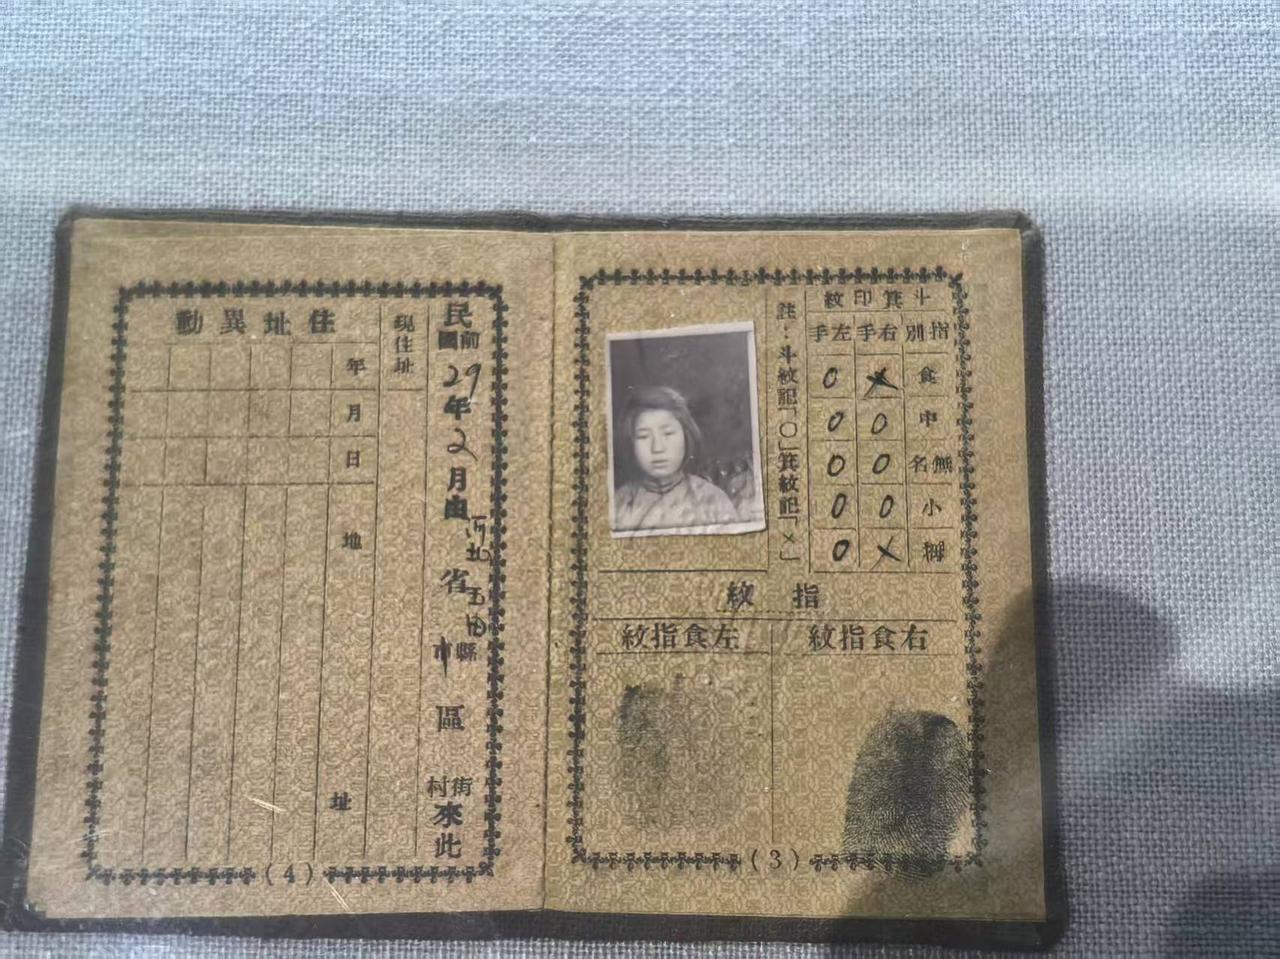 斗箕印紋
指別 右手 左手
食 × 0
中 0 0
無名 0 0
小 0 0
拇 × 0
註：斗紋記「○」箕紋記「×」
指紋
右食指紋
左食指紋
(3)
民國前29年2月由河北省玉田縣市區街村來此
現住址
住址異動
年
月
日
地
址
(4)